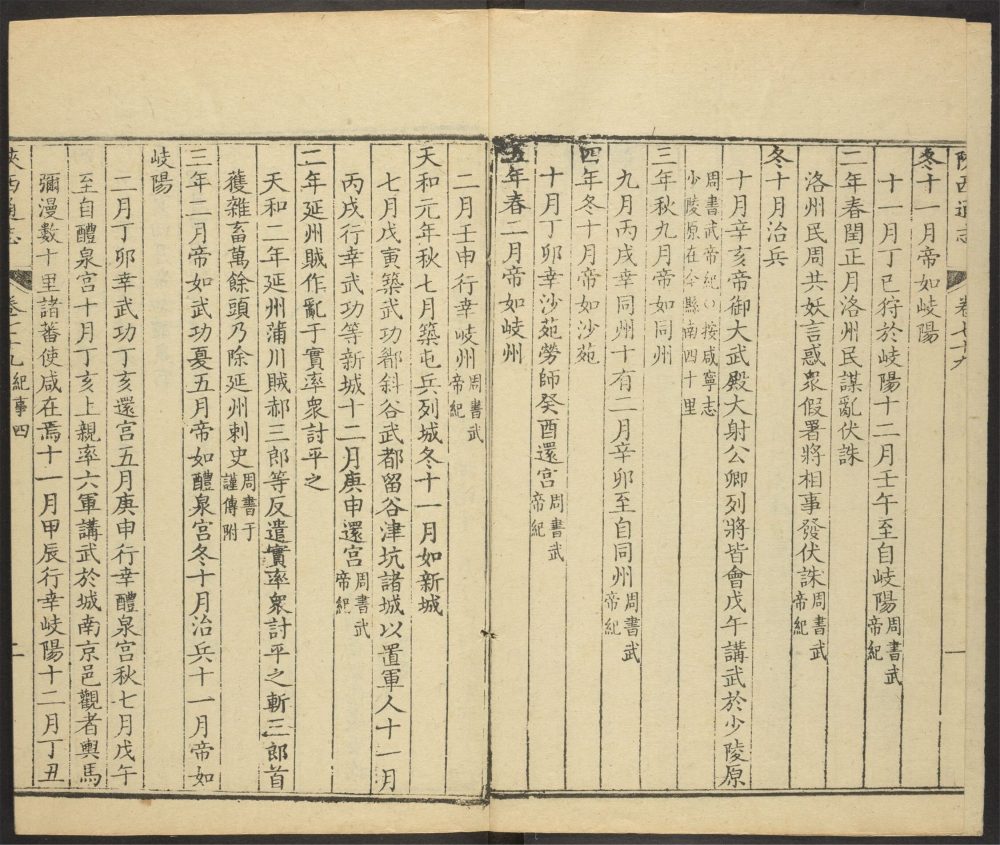 陝西通志 卷七十九 一
冬十一月帝如岐陽
十一月丁巳狩於岐陽十二月壬午至自岐陽周書武帝紀
二年春閏正月洛州民謀亂伏誅
洛州民周共妖言惑衆假署將相事發伏誅周書武帝紀
冬十月治兵
十月辛亥帝御大武殿大射公卿列將皆會戊午講武於少陵原
周書武帝紀○按咸寧志少陵原在今縣南四十里
三年秋九月帝如同州
九月丙戌幸同州十有二月辛卯至自同州周書武帝紀
四年冬十月帝如沙苑
十月丁卯幸沙苑勞師癸酉還宫周書武帝紀
五年春二月帝如岐州
二月壬申行幸岐州周書武帝紀
天和元年秋七月築屯兵列城冬十一月如新城
七月戊寅築武功郿斜谷武都留谷津坑諸城以置軍人十一月
丙戌行幸武功等新城十二月庚申還宫周書武帝紀
二年延州賊作亂于實率衆討平之
天和二年延州蒲川賊郝三郎等反遣實率衆討平之斬三郎首
獲雜畜萬餘頭乃除延州刺史周書于謹傳附
三年二月帝如武功夏五月帝如醴泉宫冬十月治兵十一月帝如
岐陽
二月丁卯幸武功丁亥還宫五月庚申行幸醴泉宫秋七月戊午
至自醴泉宫十月丁亥上親率六軍講武於城南京邑觀者輿馬
彌漫數十里諸蕃使咸在焉十一月甲辰行幸岐陽十二月丁丑
陝西通志 卷七十九 紀事四 二